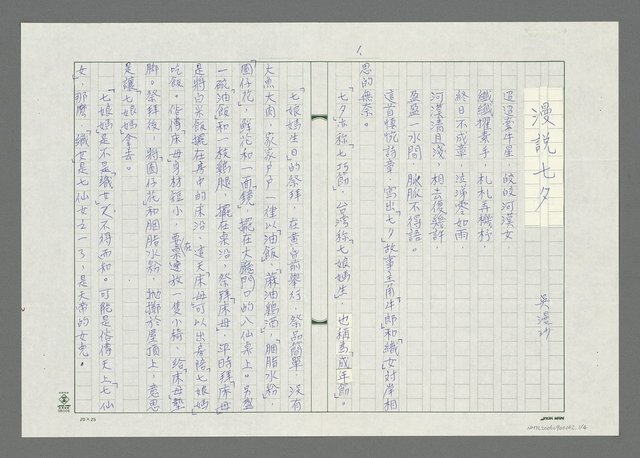 1.
漫說七夕
吳漫沙
迢迢牽牛星，皎皎河漢女，
纖纖擢素手，札札弄機杼，
終日不成章，泣涕零如雨，
河漢清且淺，相去復幾許，
盈盈一水間，脈脈不得語。
這首情悅詩章，寫出「七夕」故事主角「牛郎」和「織女」對岸相
思的無奈。
「七夕」亦稱「七巧節」，台灣稱「七娘媽生」，也稱為「成年節」。
「七娘媽」生日的祭拜，在黃昏前舉行，祭品簡單，沒有
大魚大肉，家家戶戶一律以「油飯」、「蔴油鷄酒」、「胭脂水粉」、
「圓仔花」，鮮花和一面「鏡」，擺在大廳門口的八仙桌上。另盛
一碗「油飯」和一枝鷄腿，擺在床沿，祭拜「床母」，平時拜「床母」
是將白米飯擺在房中的床沿，這天「床母」可以出房陪「七娘媽」
吃飯。俗傳「床母」身材短小，要在桌邊放一隻小椅，給「床母」墊
腳。祭拜後，將圓仔花和胭脂水粉，拋擲於屋頂上，意思
是讓「七娘媽」拿去。
「七娘媽」是不是「織女」？不得而知。可能是俗傳天上「七仙
女」，那麼，「織女」是七仙女之一了，是天帝的女兒。
20×25